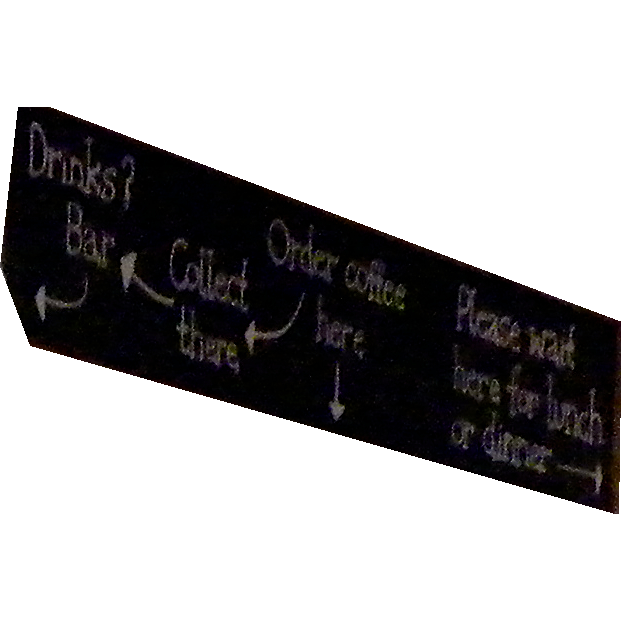 Drinks?
Bar
Collect
there
Order coffee
here
Please wait
here for lunch
or dinner